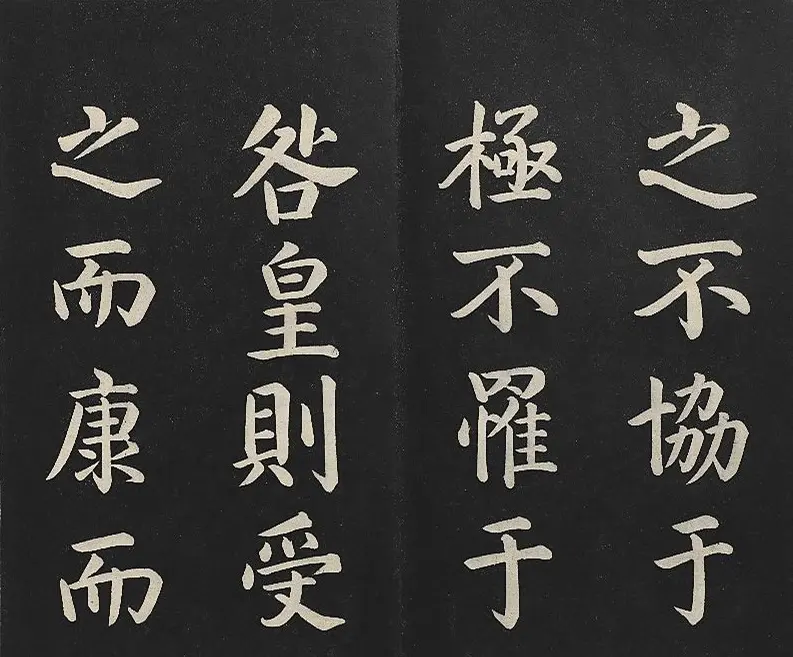 之不協于
極不罹于
咎皇則受
之而康而